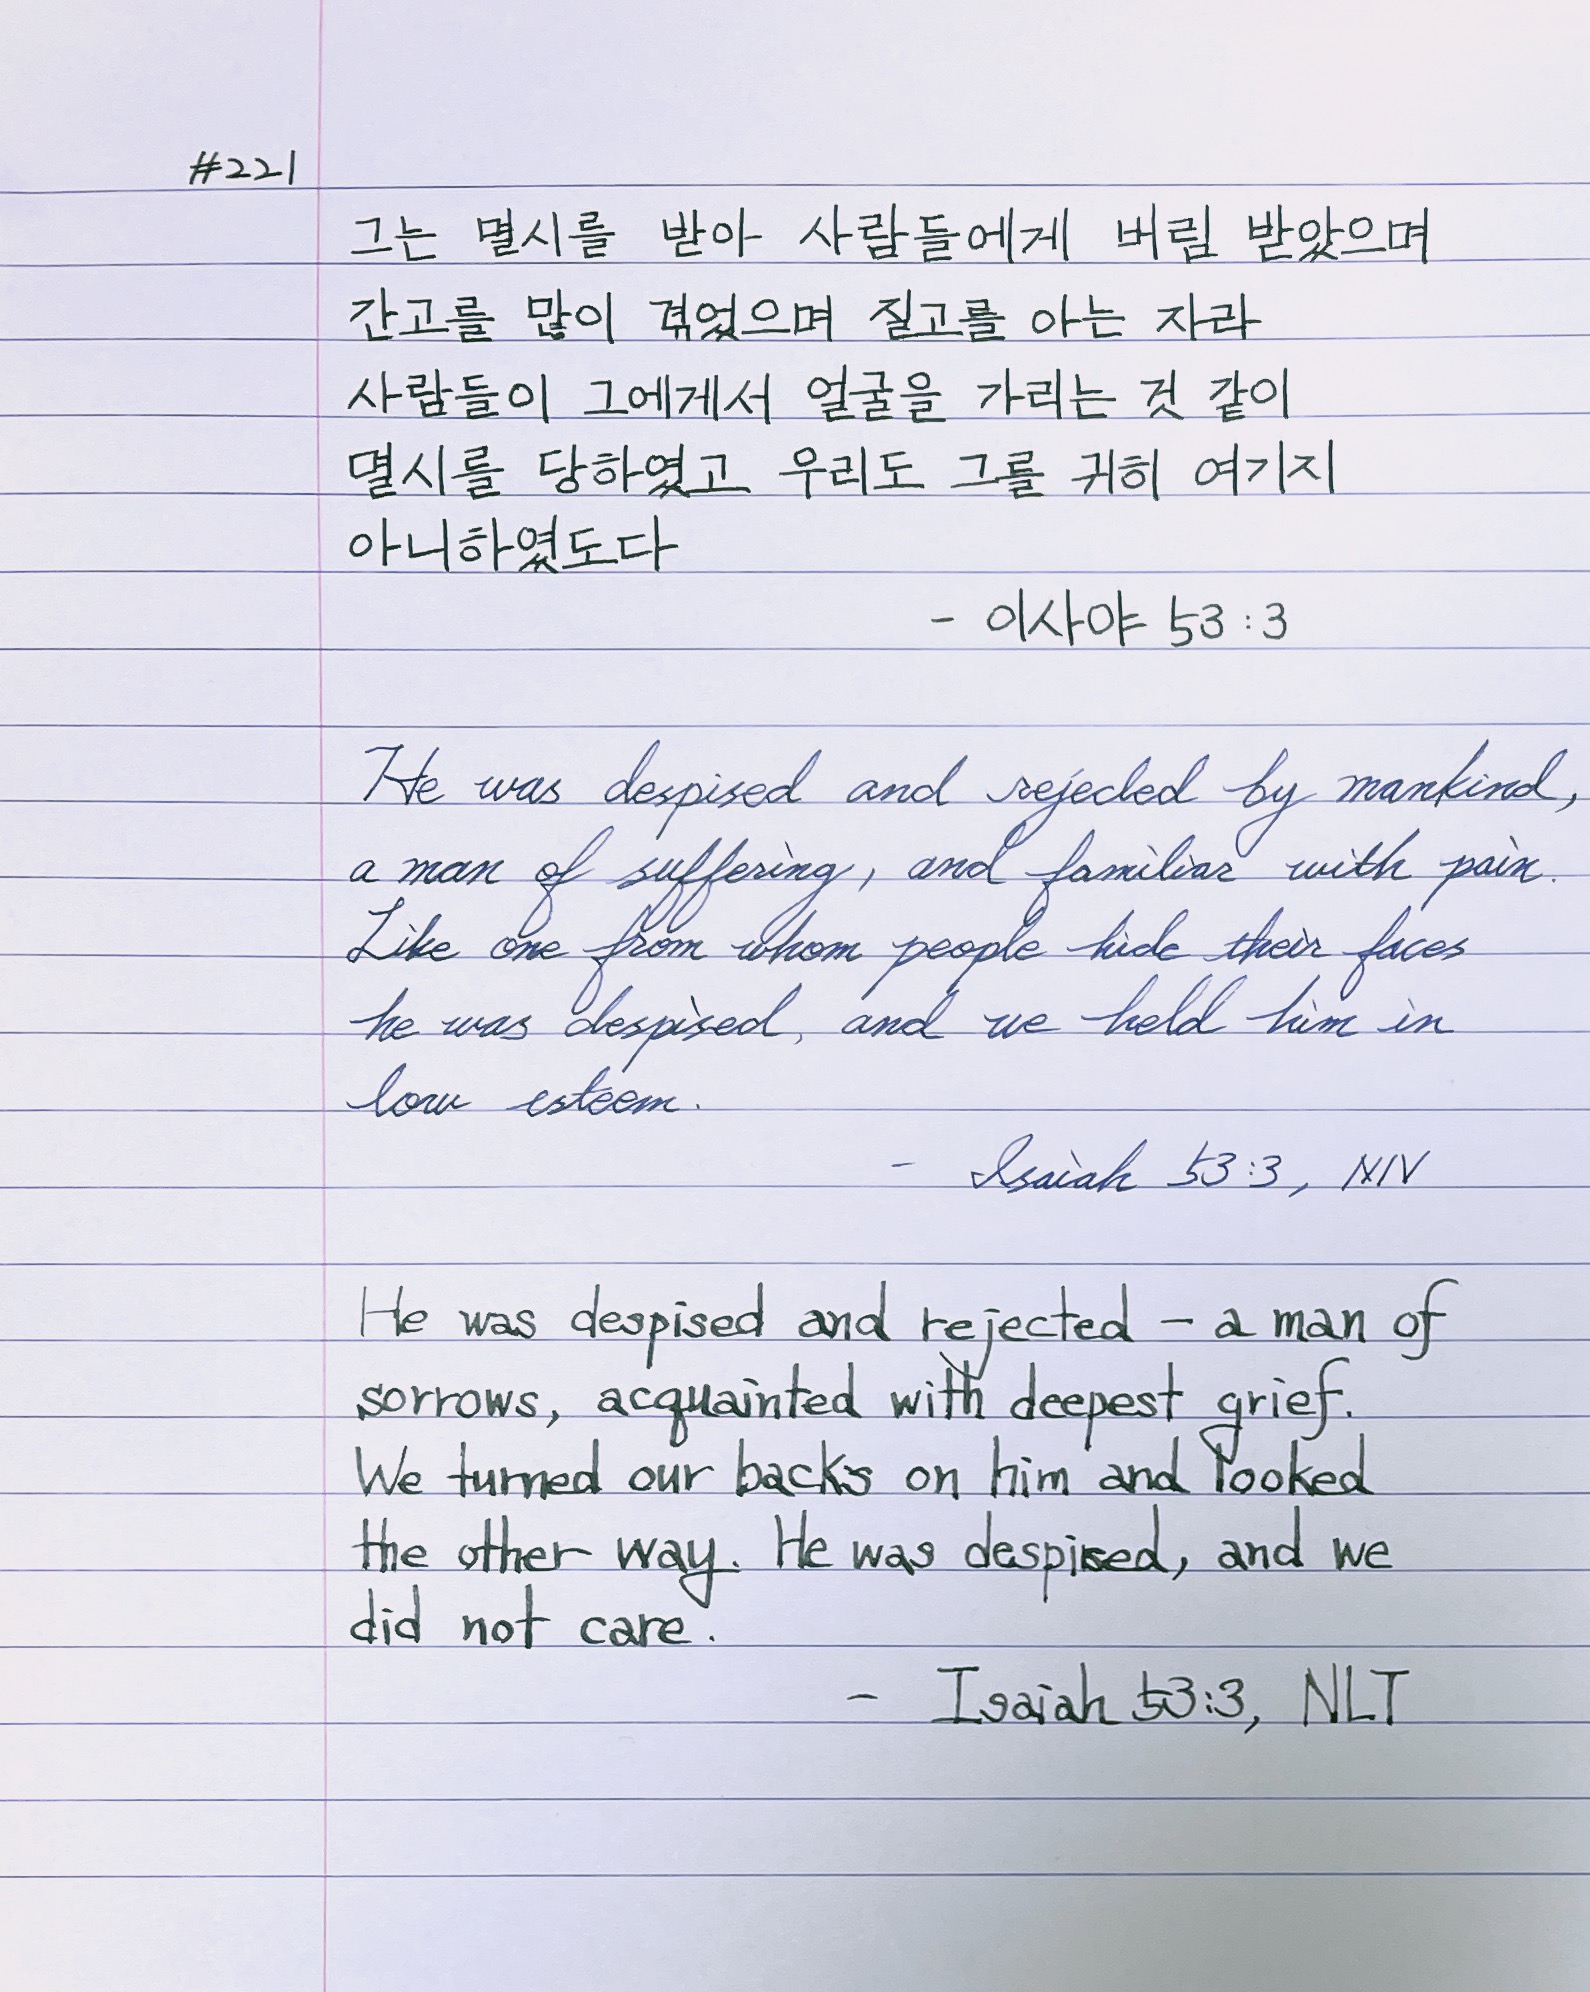 #221
그는 멸시를 받아 사람들에게 버림 받았으며
간고를 많이 겪었으며 질고를 아는 자라
사람들이 그에게서 얼굴을 가리는 것 같이
멸시를 당하였고 우리도 그를 귀히 여기지
아니하였도다
- 이사야 53:3
He was despised and rejected by mankind,
a man of suffering, and familiar with pain.
Like one from whom people hide their faces
he was despised, and we held him in
low esteem.
- Isaiah 53:3, NIV
He was despised and rejected - a man of
sorrows, acquainted with deepest grief.
We turned our backs on him and looked
the other way. He was despised, and we
did not care.
- Isaiah 53:3, NLT